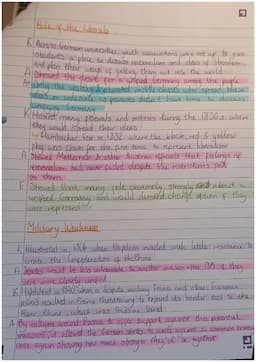 Role of the Liberals
K Across German universities, youth associations were set up to give
students a place to discuss nationalism and ideas of liberalism
and plan their ways of getting them out into the world
A Showed the desire for a unified Germany among the people
Only the wealthy & educated middle classes who spread these
ideas on nationalism as peasants didn't have time to discuss
unifying Germany
K Hosted many festivals and protests during the 1830s where
they would spread their ideas
Hambacher Fest in 1832 where the black, red & yellow
flag was flown for the first time to represent liberalism
A Showed Metternich & other Austrian officials that feelings of
nationalism had not faded despite the restrictions put
on them
E Showed that many people extremely strongly about a
unified Germany and would demand change even if they
were repressed
Military Weakness
K Humiliated in 1806 when Napoleon marched with little resistance to
create the Confederation of the Rhine
A States would be less vulnerable to another invasion after 1815 if they
were more clearly unified
K Highlighted in 1840 when a dispute involving France and other European
powers resulted in France threatening to expand its border back to the
River Rhine, which was Prussian land
A By rallying around Prussia to offer support against this potential
invasion, it allowed the German states to unite against a common enemy
once again showing how much stronger they'd be together